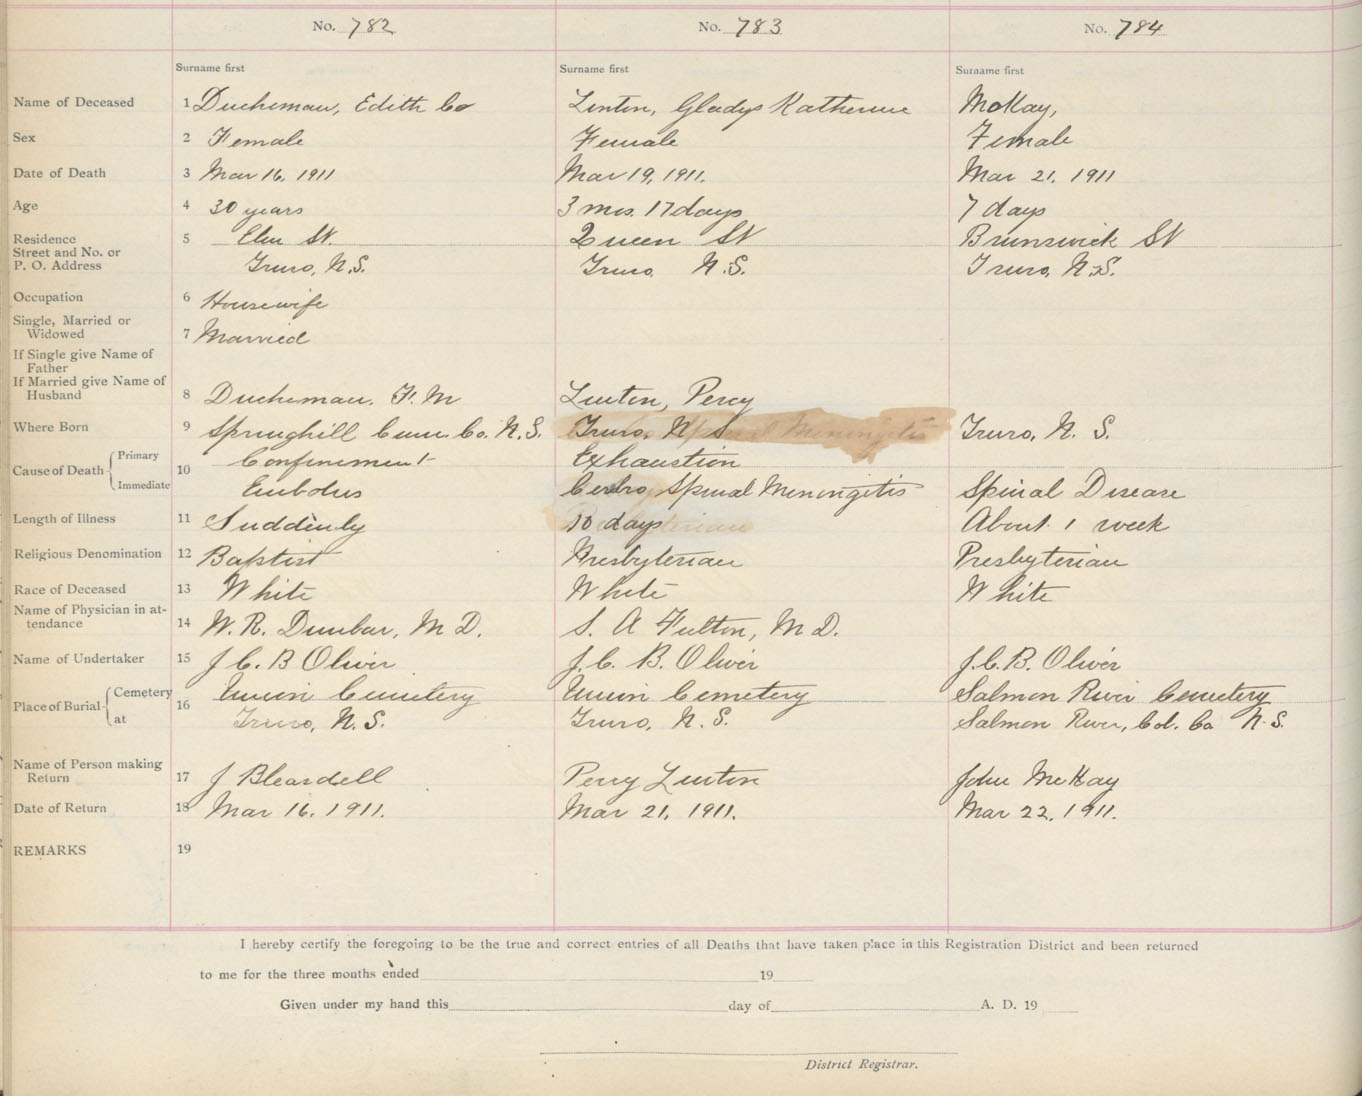 No. 782 No. 783 No. 784
Surname first Surname first Surname first
Name of Deceased 1 Duchemau, Edith Co Linton, Gladys Katherine McKay,
Sex 2 Female Female Female
Date of Death 3 Mar 16, 1911 Mar 19, 1911. Mar 21, 1911
Age 4 30 years 3 mos. 17 days 7 days
Residence 5 Elm St. Queen St Brunswick St
Street and No. or
P. O. Address Truro, N.S. Truro, N.S. Truro, N.S.
Occupation 6 Housewife
Single, Married or
Widowed 7 Married
If Single give Name of
Father
If Married give Name of
Husband 8 Duchemau, F. M Linton, Percy
Where Born 9 Springhill Cum. Co. N.S. Truro, N S Truro, N. S.
Cause of Death Primary 10 Confinement Exhaustion
Immediate Embolus Cerbro Spinal Meningitis Spinal Disease
Length of Illness 11 Suddenly 10 days About 1 week
Religious Denomination 12 Baptist Presbyterian Presbyterian
Race of Deceased 13 White White White
Name of Physician in at-
tendance 14 W. R. Dunbar, M D. S. A Fulton, M D.
Name of Undertaker 15 J C. B Oliver J. C. B. Oliver J. C. B. Oliver
Place of Burial Cemetery 16 Union Cemetery Union Cemetery Salmon River Cemetery
at Truro, N.S. Truro, N.S. Salmon River, Col. Co. N.S.
Name of Person making
Return 17 J Percy Linton John McKay
Date of Return 18 Mar 16, 1911. Mar 21, 1911. Mar 22, 1911.
REMARKS 19
I hereby certify the foregoing to be the true and correct entries of all Deaths that have taken place in this Registration District and been returned
to me for the three months ended 19
Given under my hand this day of A. D. 19
District Registrar.